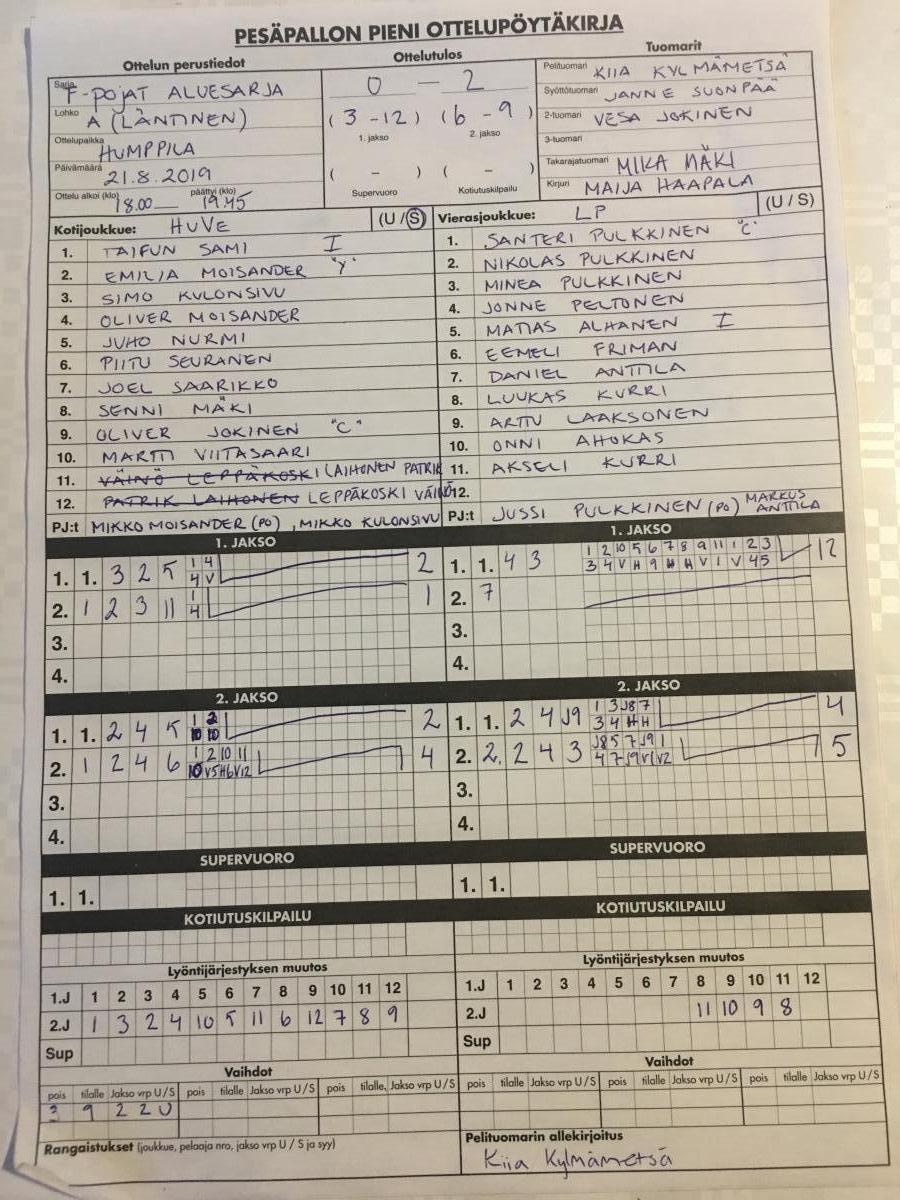 PESÄPALLON PIENI OTTELUPÖYTÄKIRJA
Ottelun perustiedot
Sarja F-POJAT ALUESARJA
Lohko A (LÄNTINEN)
Ottelupaikka HUMPPILA
Päivämäärä 21.8.2019
Ottelu alkoi (klo) 18.00 päättyi (klo) 19.45
Ottelutulos
0 - 2
(3-12) (6-9)
1. jakso 2. jakso
( - ) ( - )
Supervuoro Kotiutuskilpailu
Tuomarit
Pelituomari KIIA KYLMÄMETSÄ
Syöttötuomari JANNE SUONPÄÄ
2-tuomari VESA JOKINEN
3-tuomari
Takarajatuomari MIKA MÄKI
Kirjuri MAIJA HAAPALA
Kotijoukkue: HUVE (U/S)
1. TAIFUN SAMI I
2. EMILIA MOISANDER "Y"
3. SIMO KULONSIVU
4. OLIVER MOISANDER
5. JUHO NURMI
6. PIITU SEURANEN
7. JOEL SAARIKKO
8. SENNI MÄKI
9. OLIVER JOKINEN "C"
10. MARTTI VIITASAARI
11. VÄINÖ LEPPÄKOSKI LAIHONEN PATRIK
12. PATRIK LAIHONEN LEPPÄKOSKI VÄINÖ
PJ:t MIKKO MOISANDER (PO), MIKKO KULONSIVU
Vierasjoukkue: LP (U/S)
1. SANTERI PULKKINEN "C"
2. NIKOLAS PULKKINEN
3. MINEA PULKKINEN
4. JONNE PELTONEN
5. MATIAS ALHANEN I
6. EEMELI FRIMAN
7. DANIEL ANTTILA
8. LUUKAS KURRI
9. ARTTU LAAKSONEN
10. ONNI AHOKAS
11. AKSELI KURRI
12.
PJ:t JUSSI PULKKINEN (PO) MARKUS ANTTILA
1. JAKSO
1. 1. 3 2 5 1 4 2
4 V
2. 1 2 3 11 1 1
4
3.
4.
1. JAKSO
1. 1. 4 3 1 2 10 5 6 7 8 9 11 1 2 3 12
3 4 V H 9 H H V 1 V 45
2. 7
3.
4.
2. JAKSO
1. 1. 2 4 5 1 2 2
10 10
2. 1 2 4 6 1 2 10 11 7 4
10 V5 H6 V12
3.
4.
2. JAKSO
1. 1. 2 4 J9 1 3 J8 7 4
3 4 H H
2. 2. 2 4 3 J8 5 7 J9 1 7 5
4 7 J9 V1 V2
3.
4.
SUPERVUORO
1. 1.
SUPERVUORO
1. 1.
KOTIUTUSKILPAILU
KOTIUTUSKILPAILU
Lyöntijärjestyksen muutos
1.J 1 2 3 4 5 6 7 8 9 10 11 12
2.J 1 3 2 4 10 5 11 6 12 7 8 9
Sup
Lyöntijärjestyksen muutos
1.J 1 2 3 4 5 6 7 8 9 10 11 12
2.J 11 10 9 8
Sup
Vaihdot
pois tilalle Jakso vrp U/S pois tilalle Jakso vrp U/S pois tilalle, Jakso vrp U/S
3 9 2 2 U
Vaihdot
pois tilalle Jakso vrp U/S pois tilalle Jakso vrp U/S pois tilalle Jakso vrp U/S
Rangaistukset (joukkue, pelaaja nro, jakso vrp U / S ja syy)
Pelituomarin allekirjoitus
Kiia Kylmämetsä